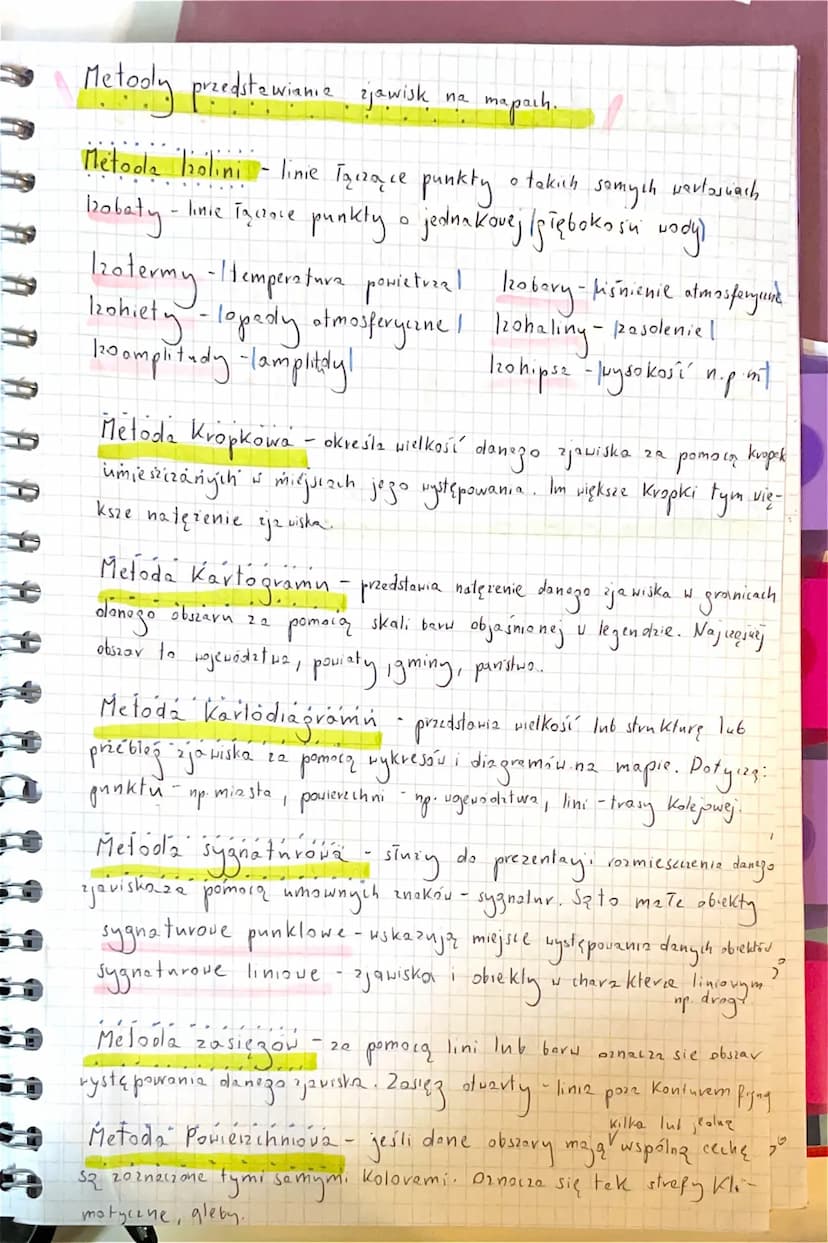 Metody przedstawiania zjawisk na mapach.
Metoda Izolini - linie łączące punkty o takich samych wartościach
Izobaty - linie łączące punkty o jednakowej |głębokości wody|
Izotermy - |temperatura powietrza| Izobary - |ciśnienie atmosferyczne|
Izohiety - |opady atmosferyczne| Izohaliny - |zasolenie|
Izoamplitudy - |amplitudy| Izohipsa - |wysokość n.p.m|
Metoda Kropkowa - określa wielkość danego zjawiska za pomocą kropek
umieszczanych w miejscach jego występowania. Im większe kropki tym wię-
ksze natężenie zjawiska.
Metoda Kartogramu - przedstawia natężenie danego zjawiska w granicach
danego obszaru za pomocą skali barw objaśnionej w legendzie. Najczęściej
obszar to województwa, powiaty, gminy, państwo..
Metoda Kartodiagramu - przedstawia wielkość lub strukturę lub
przebieg zjawiska za pomocą wykresów i diagramów na mapie. Dotyczą:
punktu - np. miasta, powierzchni - np. województwa, lini - trasy kolejowej.
Metoda sygnaturowa - służy do prezentacji rozmieszczenia danego
zjawiska za pomocą umownych znaków - sygnatur. Są to małe obiekty
sygnaturowe punktowe - wskazują miejsce występowania danych obiektów
sygnaturowe liniowe - zjawiska i obiekty w charakterze liniowym
np. drogi
Metoda zasięgów - za pomocą lini lub barw oznacza się obszar
występowania danego zjawiska. Zasięg otwarty - linia poza konturem
kilka lub jedną
Metoda Powierzchniowa - jeśli dane obszary mają wspólną cechę
są zaznaczone tymi samymi kolorami. Oznacza się tak strefy kli-
matyczne, gleby.